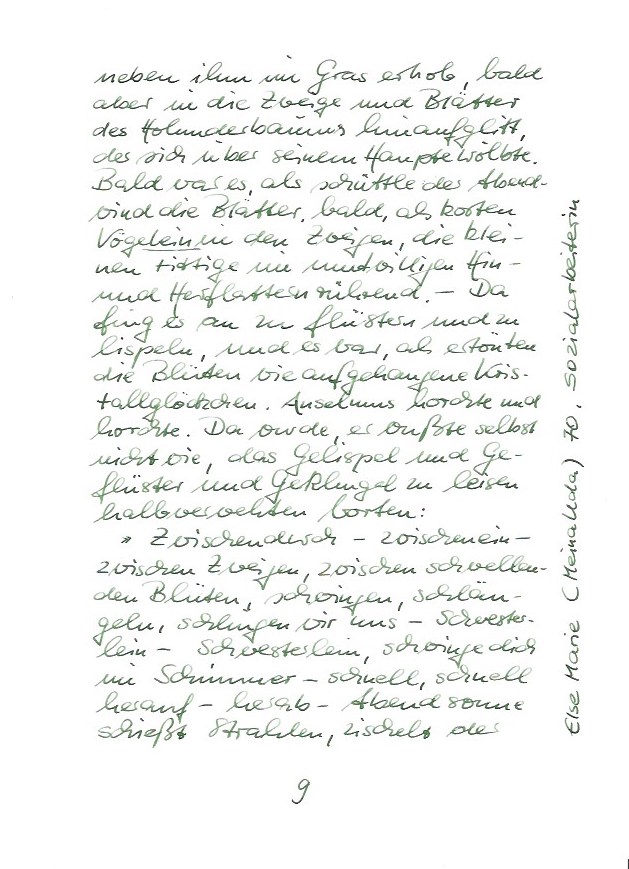 neben ihm im Gras erhob, bald
aber in die Zweige und Blätter
des Holunderbaums hinaufglitt,
der sich über seinem Haupte wölbte.
Bald war es, als schüttle der Abend-
wind die Blätter, bald, als kosten
Vögelein in den Zweigen, die klei-
nen Fittige im mutwilligen Hin-
und Herflattern rührend. – Da
fing es an zu flüstern und zu
lispeln, und es war, als ertönten
die Blüten wie aufgehangene Kris-
tallglöckchen. Anselmus horchte und
horchte. Da wurde, er wußte selbst
nicht wie, das Gelispel und Ge-
flüster und Geklingel zu leisen
halbverwehten Worten:
» Zwischendurch – zwischenein –
zwischen Zweigen, zwischen schwellen-
den Blüten, schwingen, schlän-
geln, schlingen wir uns – Schwester-
lein – Schwesterlein, schwinge dich
im Schimmer – schnell, schnell
herauf – herab – Abendsonne
schießt Strahlen, zischelt der
9
Else Marie (Meinalda) 70, Sozialarbeiterin